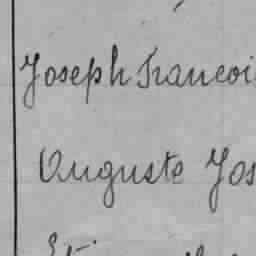 Joseph Francoi
Auguste Jos